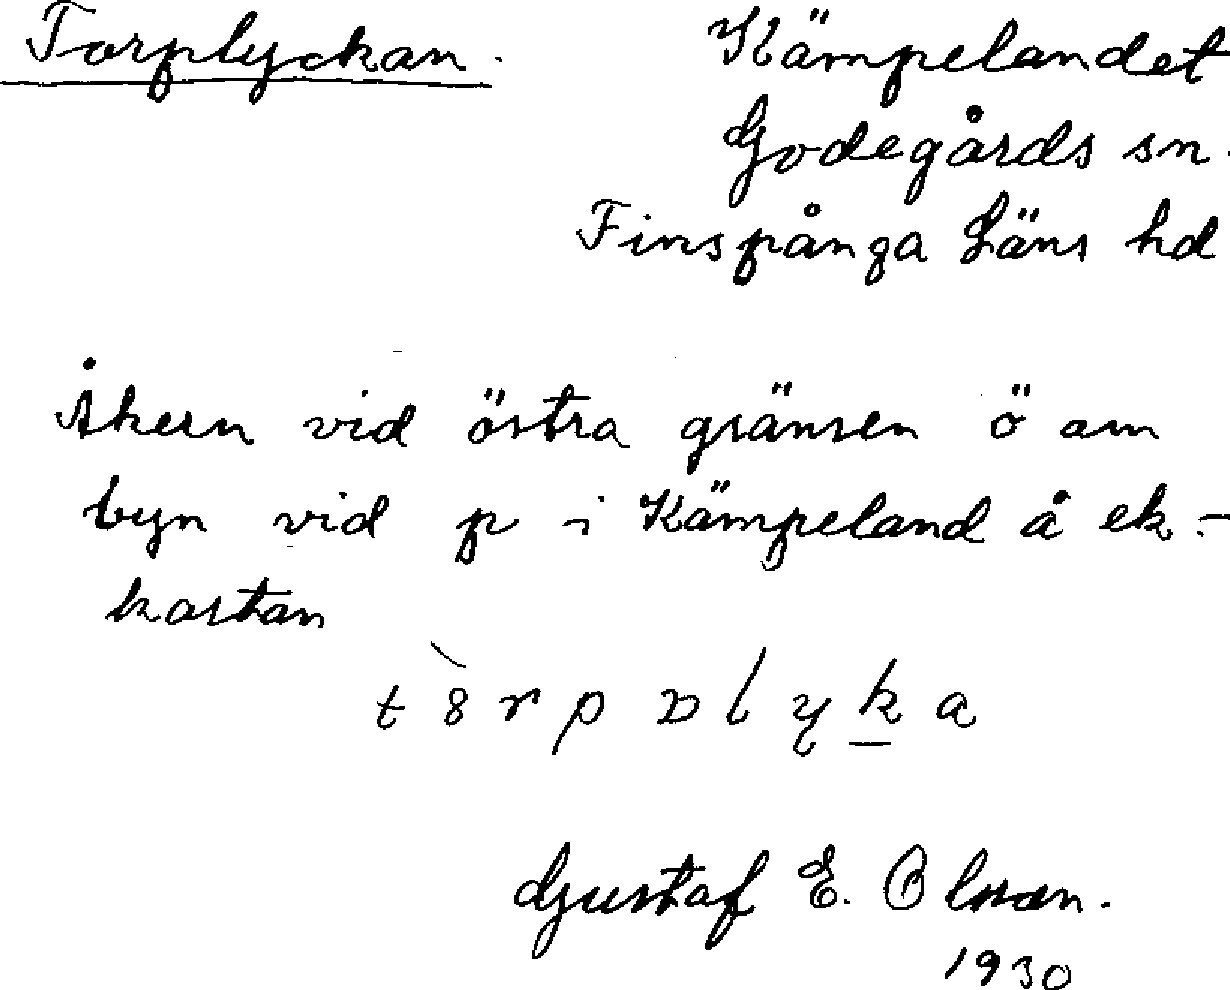 Torplyckan.
Kämpelandet
Godegårds sn.
Finspånga Läns hd
Åkern vid östra gränsen ö om
byn vid p i Kämpeland å ek.-
kartan
t8̀rpɒlyka
Gustaf E. Olsson.
1930